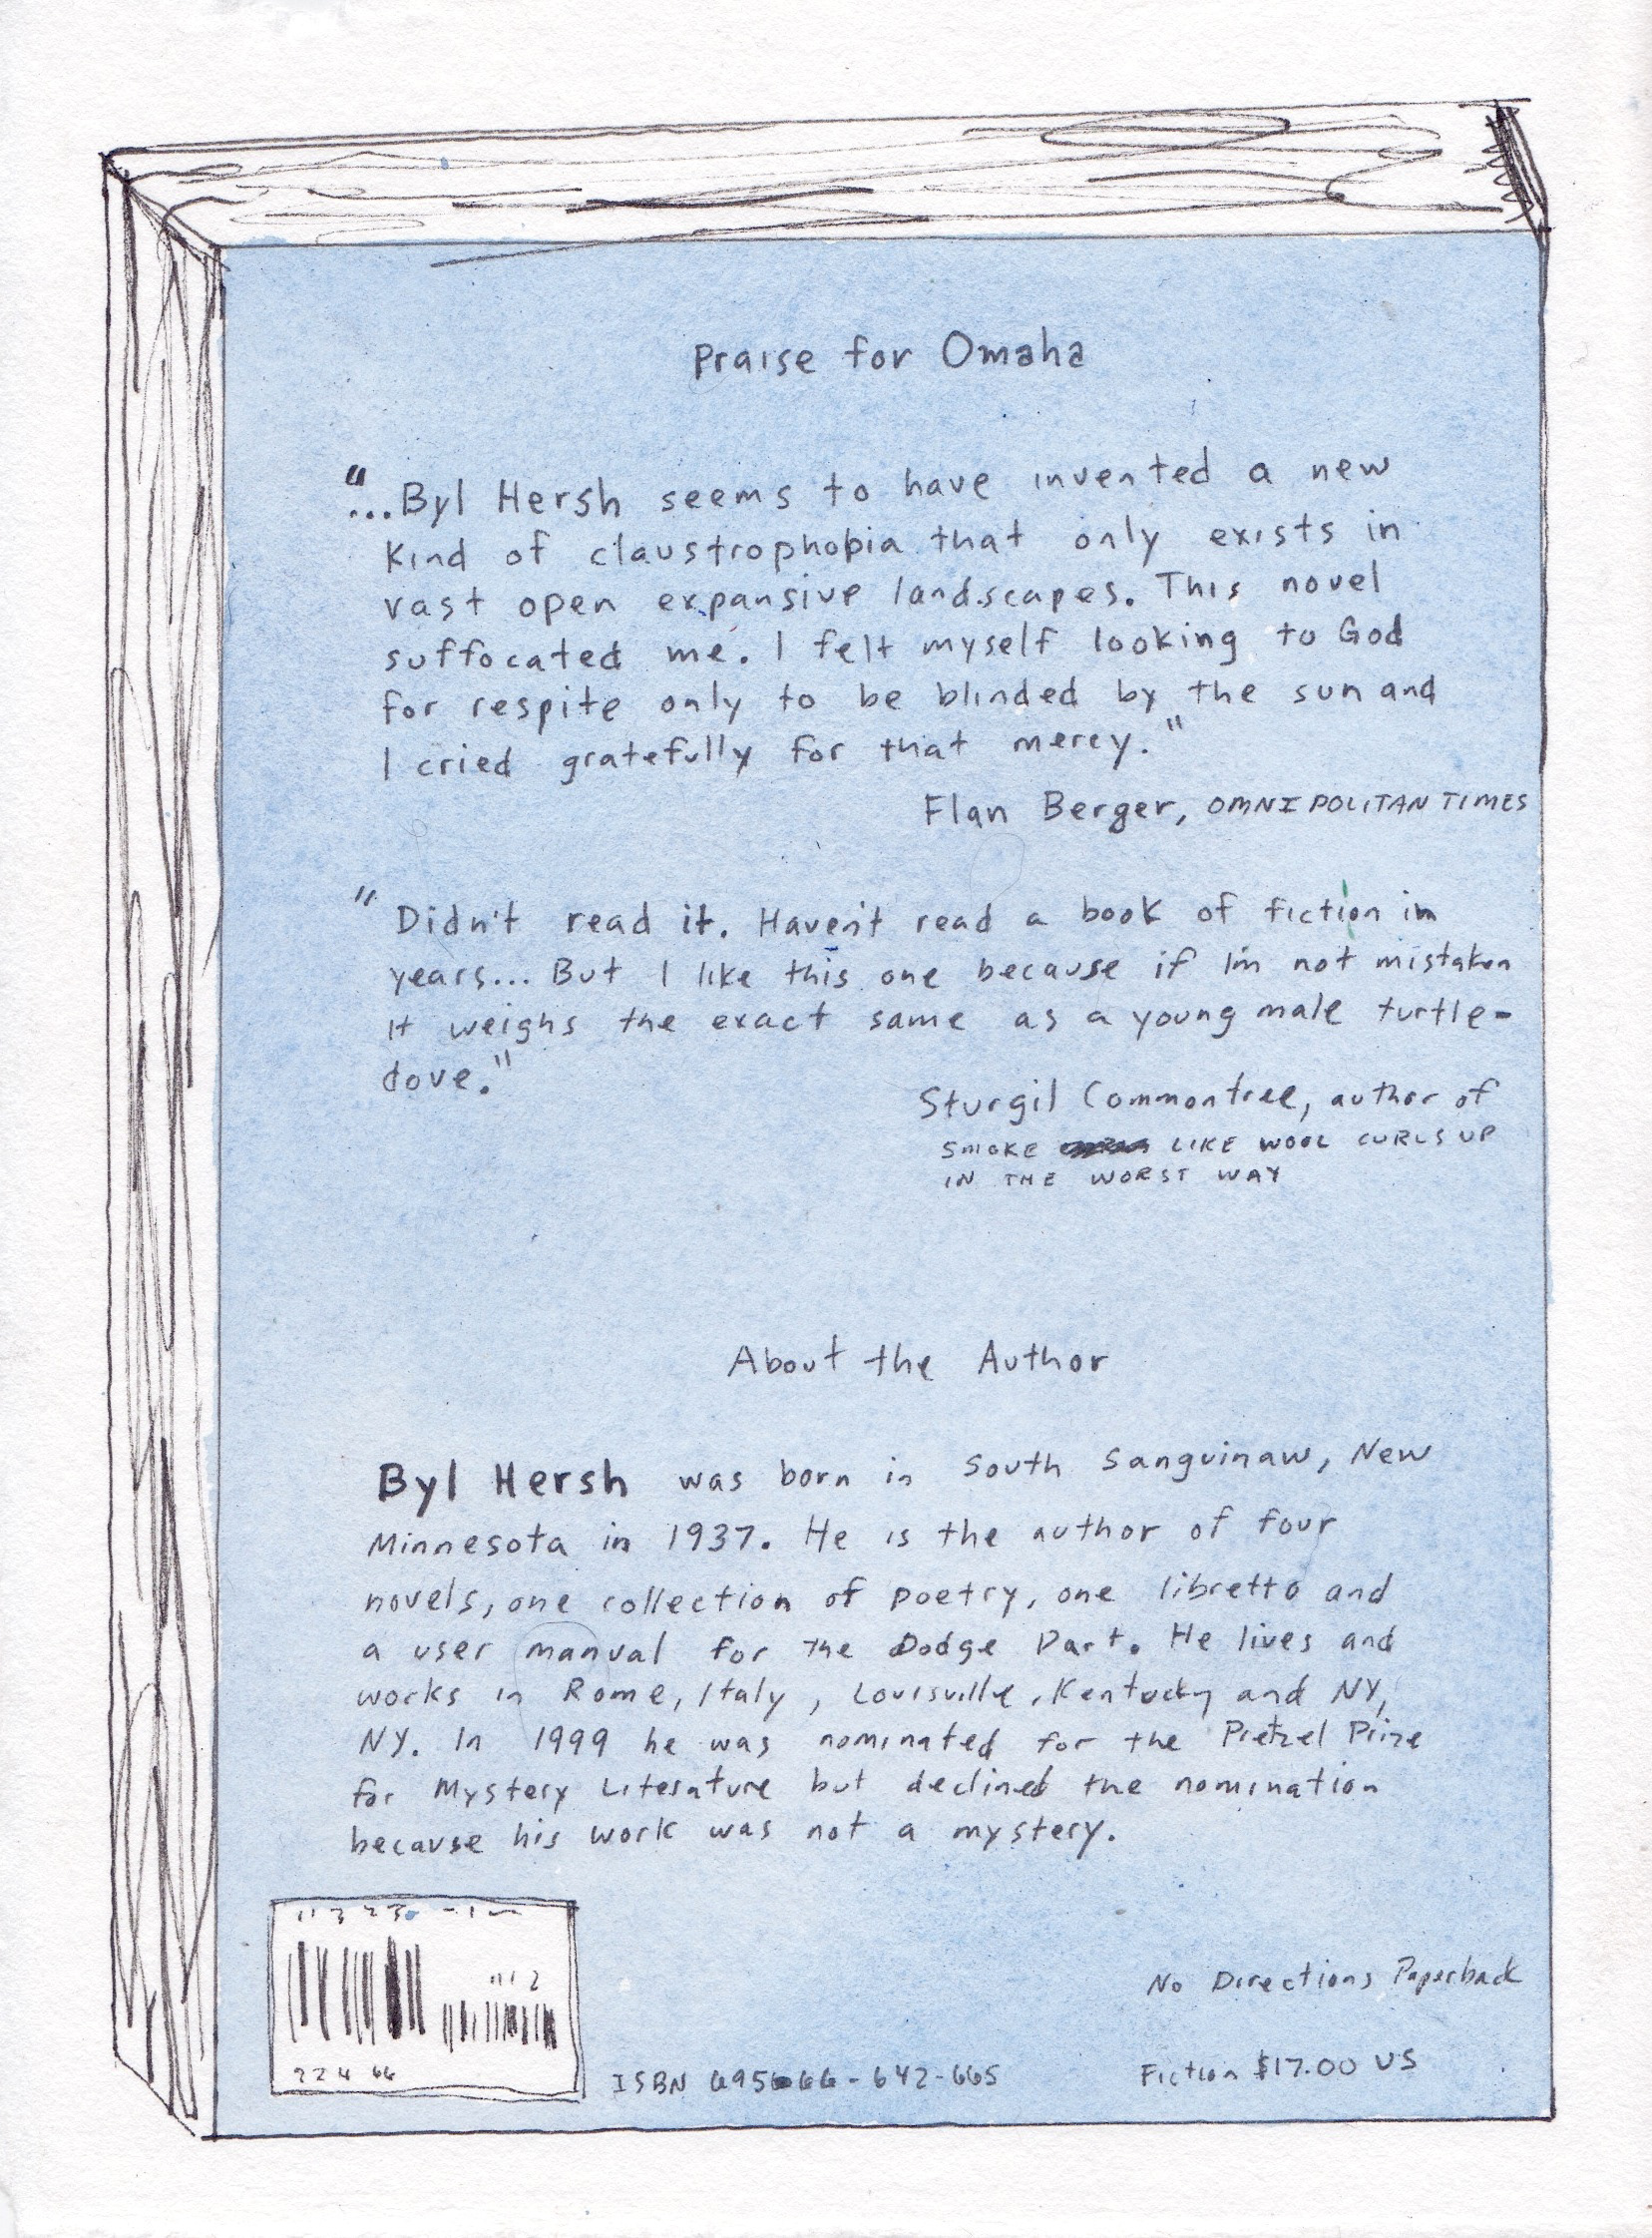 Praise for Omaha
"...Byl Hersh seems to have invented a new
kind of claustrophobia that only exists in
vast open expansive landscapes. This novel
suffocated me. I felt myself looking to God
for respite only to be blinded by the sun and
I cried gratefully for that mercy."
Flan Berger, OMNIPOLITAN TIMES
"Didn't read it. Haven't read a book of fiction in
years... But I like this one because if I'm not mistaken
it weighs the exact same as a young male turtle-
dove."
Sturgil Commontree, author of
SMOKE LIKE WOOL CURLS UP
IN THE WORST WAY
About the Author
Byl Hersh was born in South Sanguinaw, New
Minnesota in 1937. He is the author of four
novels, one collection of poetry, one libretto and
a user manual for the Dodge Dart. He lives and
works in Rome, Italy, Louisville, Kentucky and NY,
NY. In 1999 he was nominated for the Pretzel Prize
for Mystery Literature but declined the nomination
because his work was not a mystery.
No Directions Paperback
224 66
ISBN 695666-642-665
Fiction $17.00 US